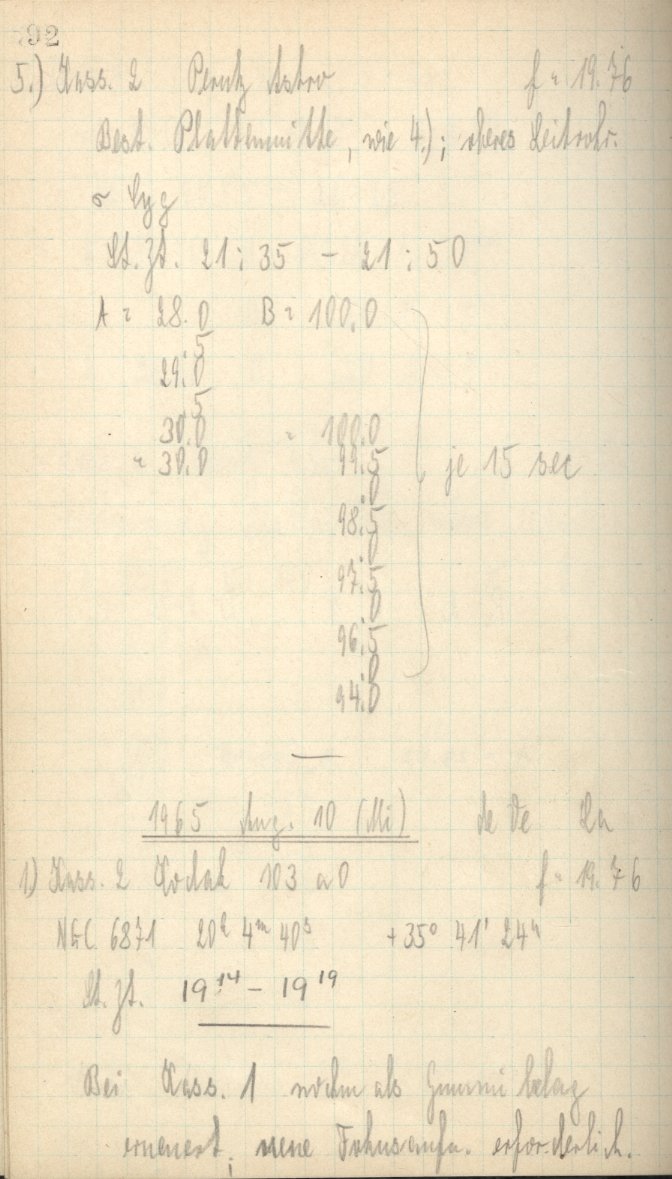 92
5.) Kass. 2 Perutz Astro f = 19.76
Best. Plattenmitte, wie 4.); oberes Leitrohr.
σ Cyg
St. Zt. 21:35 - 21:50
A = 28.0 B = 100.0
.5
29.0
.5
30.0 = 100.0
= 30.0 99.5
.0 je 15 sec
98.5
.0
97.5
.0
96.5
.0
94.0
1965 Aug. 10 (Mi) de Ve
1) Kass. 2 Kodak 103 aO f = 19.76
NGC 6871 20h 4m 40s +35° 41' 24"
St. Zt. 19 14 - 19 19
Bei Kass. 1 nochmals Gummibelag
erneuert; neue Fokusaufn. erforderlich.